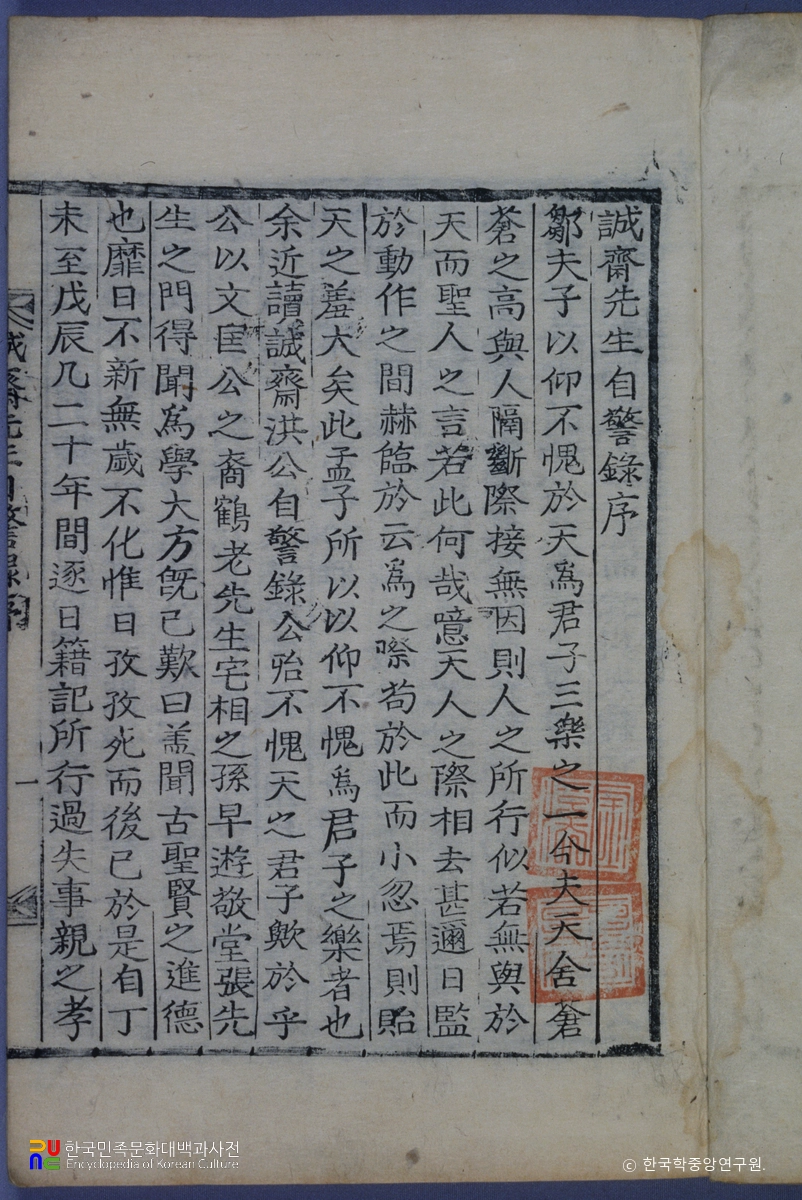 誠齋先生自警錄序
鄒夫子以仰不愧於天爲君子三樂之一今夫天舍蒼
蒼之高與人隔斷際接無因則人之所行似若無與於
天而聖人之言若此何哉噫天人之際相去甚邇日監
於動作之間赫臨於云爲之際苟於此而小忽焉則貽
天之羞大矣此孟子所以以仰不愧爲君子之樂者也
余近讀誠齋洪公自警錄公殆不愧天之君子歟於乎
公以文匡公之裔鶴老先生宅相之孫早遊敬堂張先
生之門得聞爲學大方旣已歎曰盖聞古聖賢之進德
也靡日不新無歲不化惟日孜孜死而後已於是自丁
未至戊辰凡二十年間逐日籍記所行過失事親之孝
誠齋先生自警錄序
一
한국민족문화대백과사전
Encyclopedia of Korean Culture
© 한국학중앙연구원.